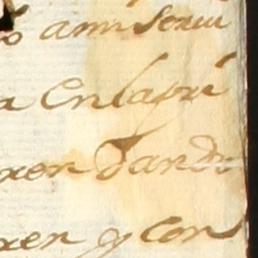 o ami Seruí
a Enlapri
xer Dando
xer y Con